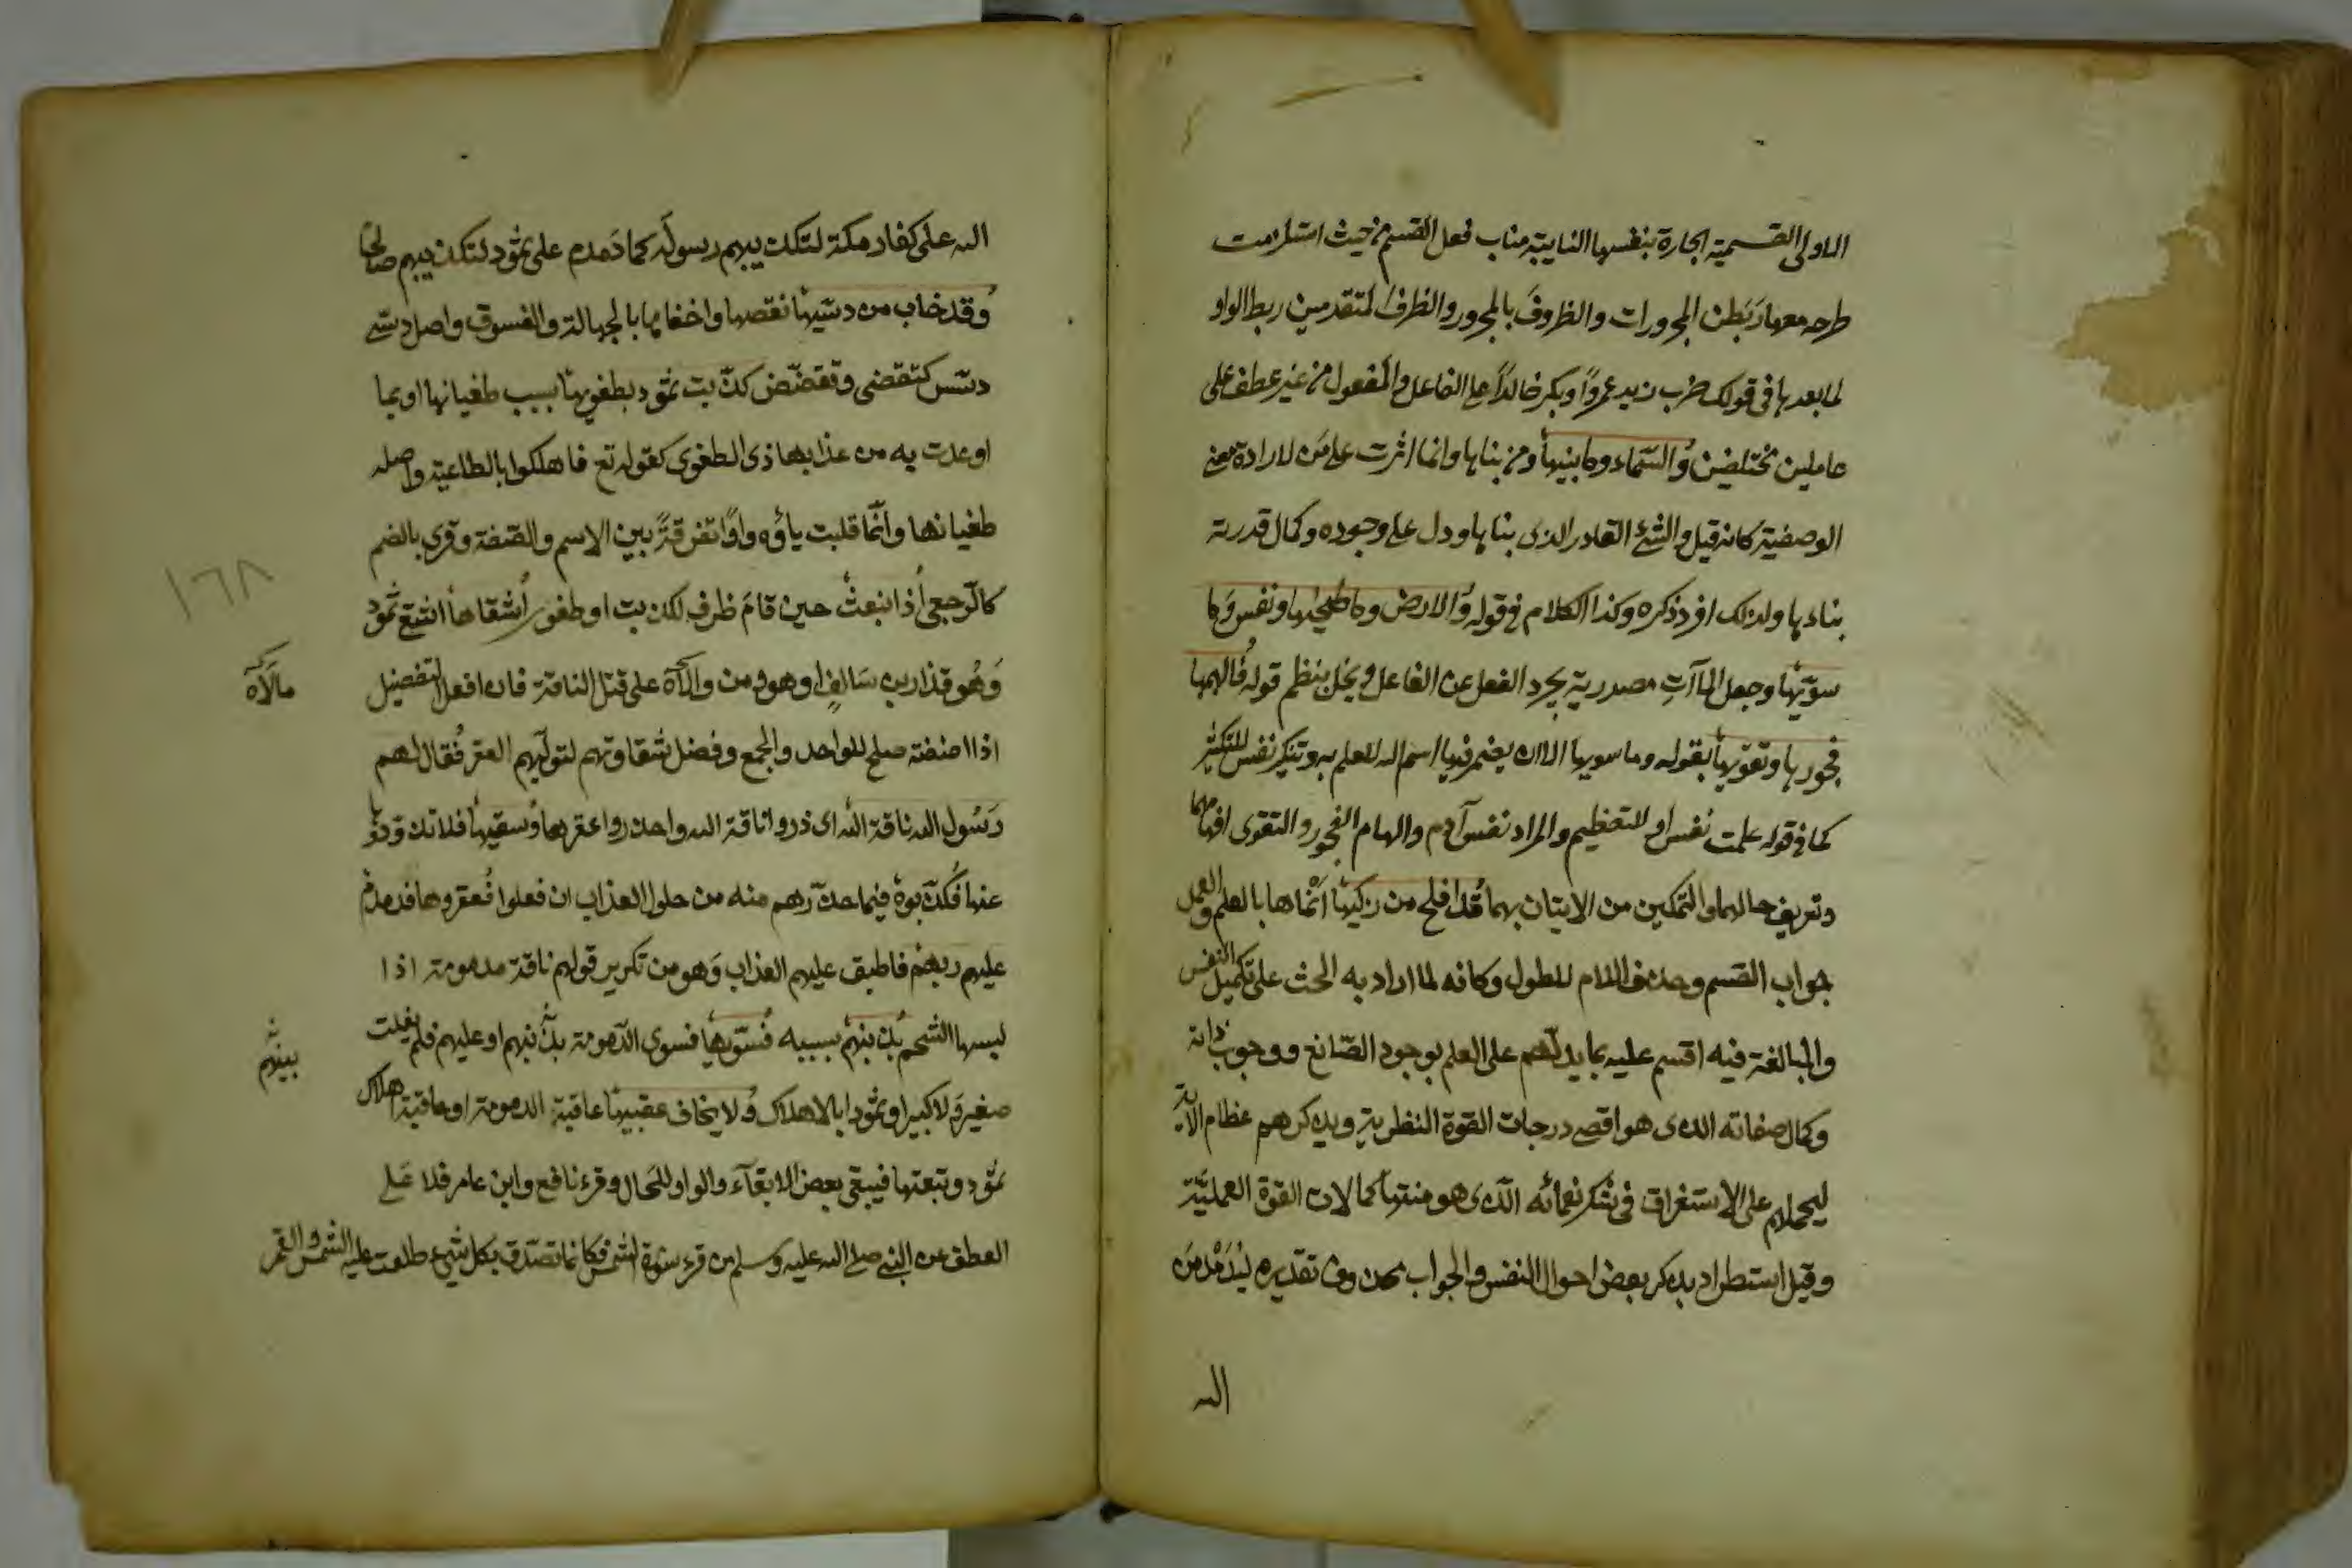 الاولى القسمية الجارة بنفسها النايبة مناب فعل القسم من حيث استلزمت
طرحه معها رَبَطن المجرورات والظروفَ بالمجرور والظرف المتقدمين ربط الواو
لما بعدها في قولك ضرب زيد عمروًا وبكر خالدًا على الفاعل والمفعول من غير عطف على
عاملين مختلفين وَالسَّماء وما بنيها ومن بناها وانما اثرت على مَن لارادة معنى
الوصفية كانه قيل والشئ القادر الذى بناها ودل على وجوده وكمال قدرته
بناءها ولذلك افرد ذكره وكذا الكلام في قوله وَالارض وما طحيٰها ونفس وَما
سوّيٰها وجعل المآآتِ مصدرية يجرد الفعل عن الفاعل ويخل بنظم قوله فَالهمها
فجورها وتقوٰيها بقوله وما سويها الا ان يضمر فيها اسم الله للعلم به وتنكير نفس للتكثير
كما في قوله علمت نفس او للتعظيم والمراد نفس آدم والهام الفجور والتقوى افهامهما
وتعريف حالهما والتمكين من الاتيان بهما قَد افلح من زكيٰها انماها بالعلم والعمل
جواب القسم وحذف اللام للطول وكانه لما اراد به الحث على تكميل النفس
والمبالغة فيه اقسم عليه بما يدلهم على العلم بوجود الصّانع ووجوب ذاته
وكمال صفاته الذى هو اقصى درجات القوة النظرية ويذكرهم عظام الآية
ليحملهم على الاستغراق في شكر نعمائه الذى هو منتهىٰ كمالات القوة العمليّة
وقيل استطراد بذكر بعض احوال النفس والجواب محذوف تقديره ليُدَمْدِمَن
الله
الله على كفار مكة لتكذيبهم رسولَه كما دَمدم على ثمود لتكذيبهم صالحًا
وَقد خاب من دسّيٰها نقصها واخفاها بالجهالة والفسوق واصل دسّى
دسّس كتقضى وتقضّض كذّبت ثمود بطغويٰها بسبب طغيانها او بما
اوعدت به من عذابها ذى الطغوى كقوله تع فاهلكوا بالطاغية واصله
طغيانها وانّما قلبت ياؤه واوًا تفرقةً بين الاسم والصّفة وقرى بالضم
كالرّجعى اِذ انبعث حين قامَ ظرف لكذبت او طغوى اَشقاها اشقى ثمود
١٦٨
وَهُو قذار بن سَالفٍ او هو ومن والآة على قتل الناقة فان افعل التفضيل
مالَآه
اذا اضفته صلح للواحد والجمع وفضل شقاوتهم لتولّيهم العقر فَقال لهم
رَسُول الله ناقة الله اى ذروا ناقة الله واحذروا عقرها وسقيٰها فلا تذودوها
عنها فكَذّبوه فيما حذّرهم منه من حلول العذاب ان فعلوا فَعقروها فدمدم
عليهم ربهم فاطبق عليهم العذاب وَهو من تكرير قولهم ناقة مدمومة اذا
لبسها الشحم بذنبهم بسببه فَسَوّيٰها فسوى الدّمومة بذنبهم او عليهم فلم يفلت
بينهم
صغير وَلا كبير او ثمود بالاهلاك وَلا يخاف عقبيٰها عاقبة الدمومة او عاقبة هلاك
ثمود وتبعتها فيبقى بعض الابقآء والواو للحال وقرء نافع وابن عامر فلا عَلى
العطف عن النبي صلى الله عليه وسلم من قرء سورة الشمس فكانما تصدّق بكل شيء طلعت عليه الشمس والقمر